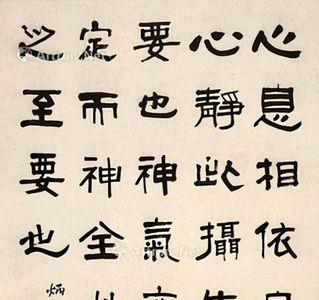 心息相依
心靜此攝
要也神氣
定而神全
之至要也